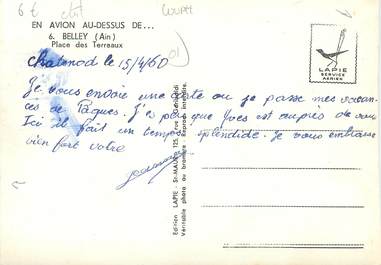 6 €
EN AVION AU-DESSUS DE...
6. BELLEY (Ain)
Place des Terreaux
LAPIE
SERVICE
AÉRIEN
le 15/4/60
Je vous envoie une carte ou je passe mes vacan-
ces de Paques. J'es père que Yves est auprès de vous
Ici il fait un temps splendide. Je vous embrasse
bien fort votre
Edition LAPIE - St-MAUR
Véritable photo au bromure - Reproduction interdite